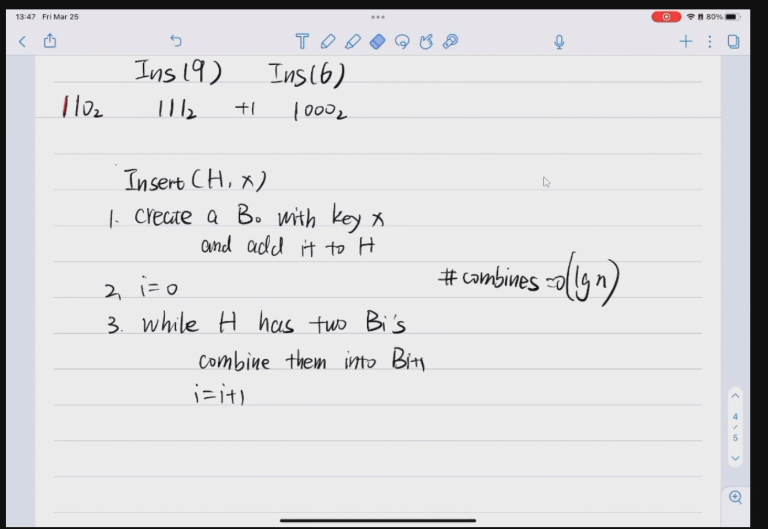 13:47 Fri Mar 25
80%
Ins(9) Ins(6)
110₂ 111₂ +1 1000₂
Insert (H, x)
1. Create a B₀ with key x
and add it to H
#combines = O(lg n)
2. i=0
3. while H has two Bi's
combine them into Bi+1
i=i+1
4
/
5